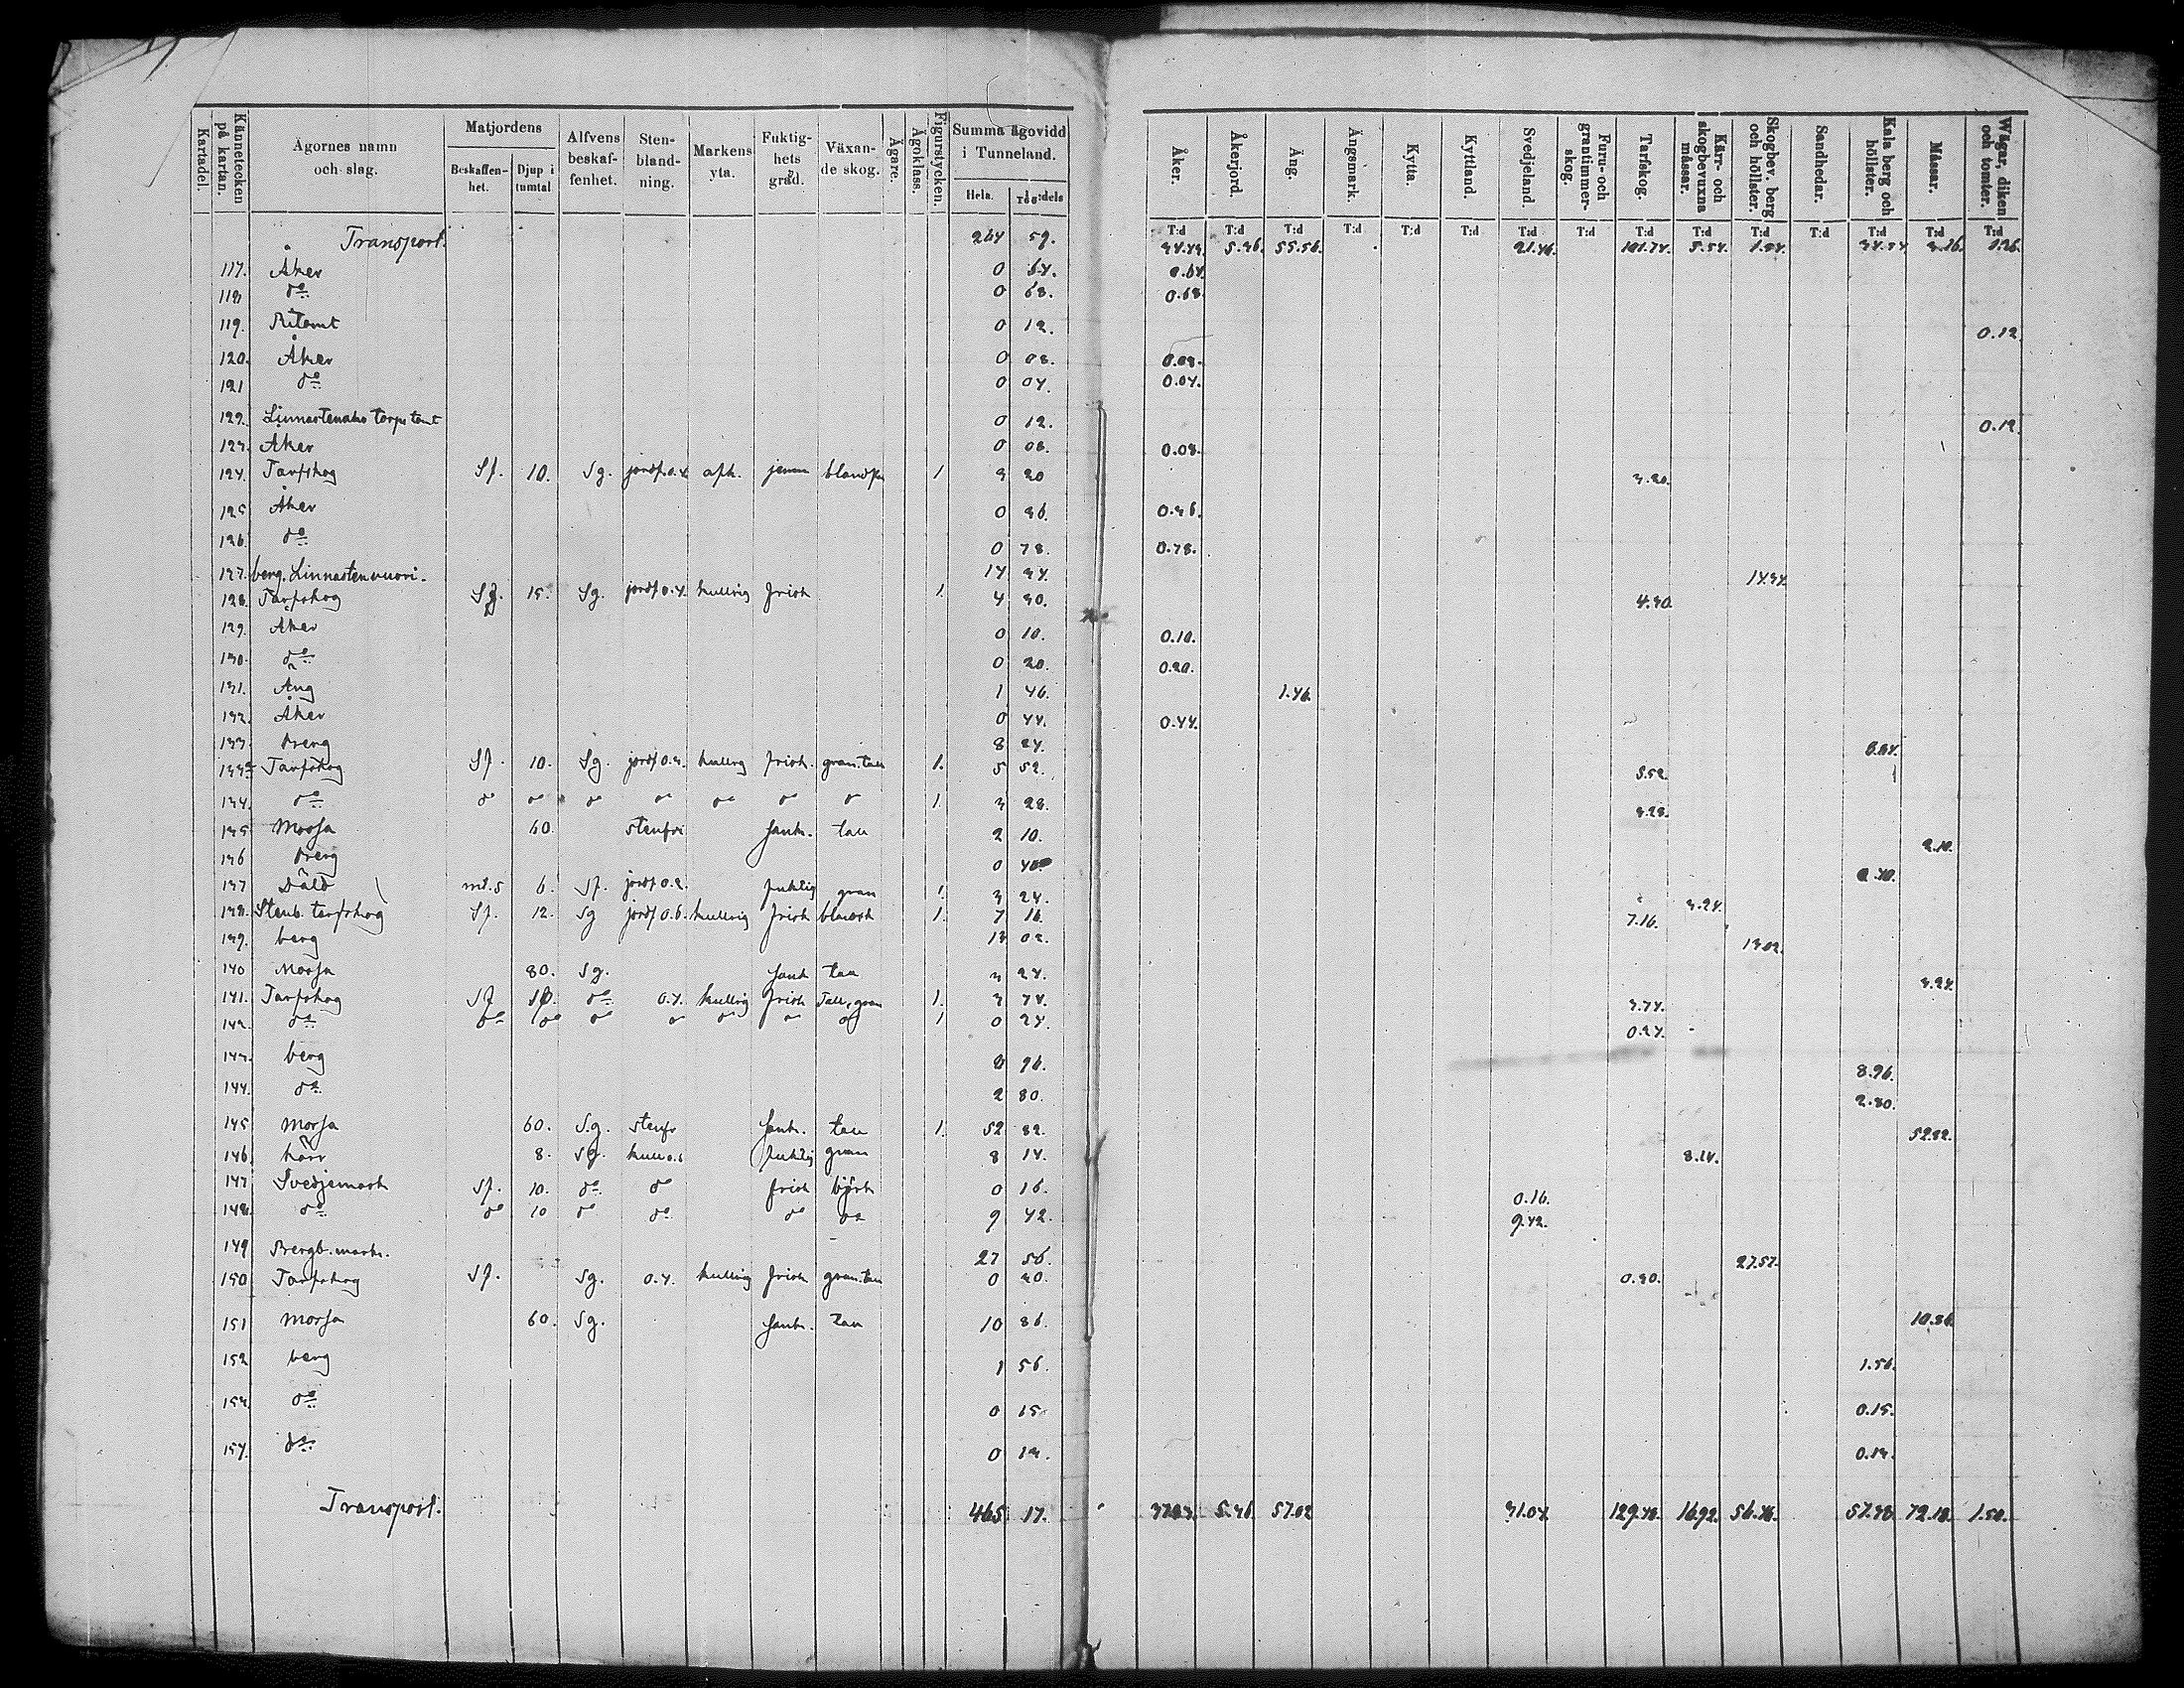 Kartadel. Kännetecken på kartan. Ägornes namn och slag. Matjordens Beskaffenhet. Djup i tumtal Alfvens beskaffenhet. Stenblandning. Markens yta. Fuktighets grad. Växande skog. Ägare. Ägoklass. Figurstycken. Summa ägovidd i Tunneland. Hela. 1/100:dels
Åker. Åkerjord. Äng. Ängsmark. Kytta. Kyttland. Svedjeland. Furu- och grantimmerskog. Tarfskog. Kärr- och skogbevuxna måssar. Skogbev. berg och höllster. Sandhedar. Kala berg och höllster. Måssar. Wägar, diken och tomter.
T:d T:d T:d T:d T:d T:d T:d T:d T:d T:d T:d T:d T:d T:d T:d
Transport. 264 59. 5.36. 55.56. 21.46. 101.74. 5.54. 1.26.
117. Åker 0 64. 0.64.
118 do 0 68. 0.68.
119. Ritomt 0 12. 0.12
120. Åker 0 08. 0.08.
121 do 0 04. 0.04.
122. Linnastenaho torps tomt 0 12. 0.12.
123. Åker 0 08. 0.08.
124. Tarfskog Sf. 10. Sg. jordf. 0.4 jemn 1 3 20 3.20.
125 Åker 0 36. 0.36.
126. do 0 78. 0.78.
127. berg. Linnastenvuori. 14 34. 14.34.
128. Tarfskog Sf. 15. Sg. jordf 0.4. kullrig frisk 1. 4 30. 4.30.
129. Åker 0 10. 0.10.
130. do 0 20. 0.20.
131. Äng 1 46. 1.46.
132. Åker 0 44. 0.44.
133. Berg 8 24. 8.24.
133½ Tarfskog Sf. 10. Sg. jordf 0.3. kullrig frisk. gran. tall 1. 5 52. 5.52.
134. do do do do do do do do 1. 3 28. 3.28.
135 Mossa 60. stenfri sank. tall 2 10. 2.10.
136 Berg 0 40 0.40.
137 Däld 6. Sf. jordf 0.2. fuktig gran 1. 3 24. 3.24.
138. Stenb. tarfskog Sf. 12. Sg jordf 0.6. kullrig frisk blandsk 1. 7 16. 7.16.
139. berg 13 02. 13.02.
140 Mossa 80. Sg. sank tall 3 24. 3.24.
141. Tarfskog Sf 10. do 0.4. kullrig frisk Tall, gran 1. 3 74. 3.74.
142. do do do do do do do do 1 0 24. 0.24.
143. berg 8 96. 8.96.
144. do 2 80. 2.80.
145 Mossa 60. Sg. stenfr sank. tall 1. 52 82. 52.82.
146. kärr 8. Sg. kull 0.6 fuktig gran 8 14. 8.14.
147 Svedjemark Sf. 10. do do frisk björk 0 16. 0.16.
148. do do 10 do do do do 9 42. 9.42.
149 Bergb. mark. 27 56. 27.57.
150 Tarfskog Sf. Sg. 0.4. kullrig frisk gran. tall 0 30. 0.30.
151 Mossa 60. Sg. sank. Tall 10 86. 10.86.
152 berg 1 56. 1.56.
153. do 0 15. 0.15.
154. do 0 13. 0.13.
Transport. 465 17. 5.36. 57.02 31.04. 129.48. 16.92. 72.18. 1.50.